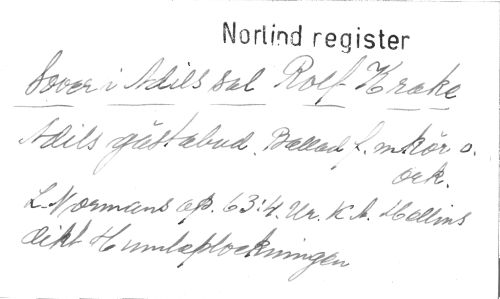 Norlind register
Sover i Adils sal Rolf Krake
Adils gästabud. Ballad f. mkör o.
ork.
L. Normans op. 63:4. Ur. K. A. Melins
dikt Humleplockningen